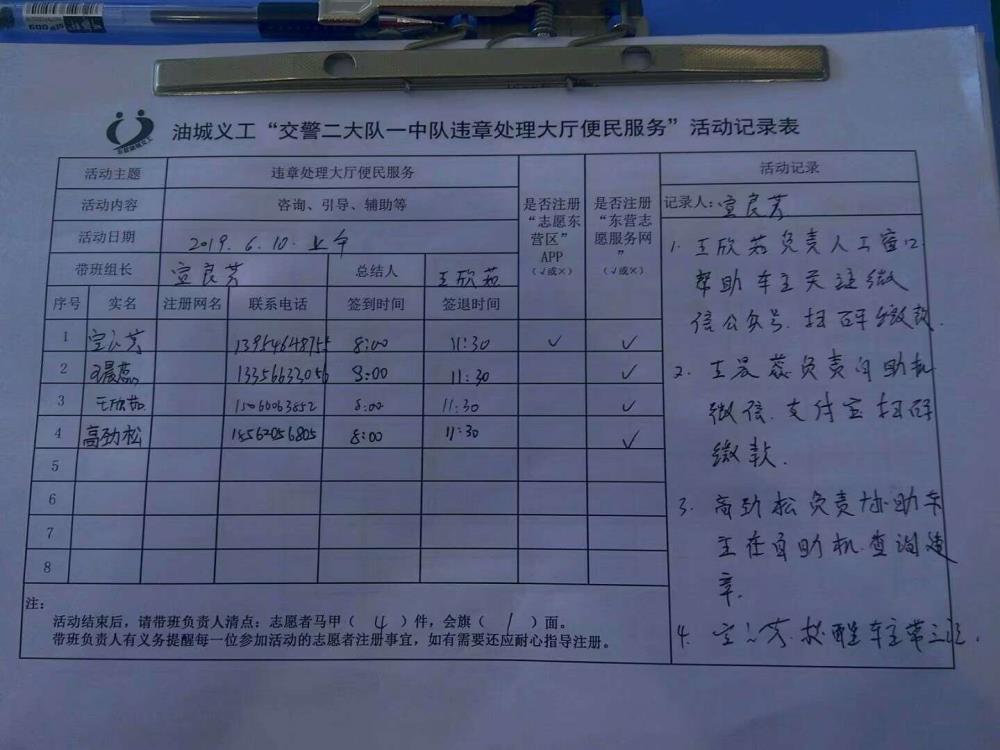 油城义工“交警二大队一中队违章处理大厅便民服务”活动记录表
活动主题 违章处理大厅便民服务
活动内容 咨询、引导、辅助等
活动日期 2019.6.10.上午
带班组长 宣良芳 总结人 王欣茹
序号 实名 注册网名 联系电话 签到时间 签退时间
是否注册“志愿东营区”APP（√或×）
是否注册“东营志愿服务网”（√或×）
1 宣良芳 13954648755 8:00 11:30 ✓ ✓
2 王晨蕊 13356632056 8:00 11:30 ✓
3 王欣茹 15066063852 8:00 11:30 ✓
4 高劲松 15562056805 8:00 11:30 ✓
5
6
7
8
注：
活动结束后，请带班负责人清点：志愿者马甲（ 4 ）件，会旗（ 1 ）面。
带班负责人有义务提醒每一位参加活动的志愿者注册事宜，如有需要还应耐心指导注册。
活动记录
记录人：宣良芳
1. 王欣茹负责人工窗口.
帮助车主关注微
信公众号.扫码缴款.
2. 王晨蕊负责自助机
微信.支付宝扫码
缴款.
3. 高劲松负责协助车
主在自助机.查询违
章.
4. 宣良芳.提醒车主带三证.